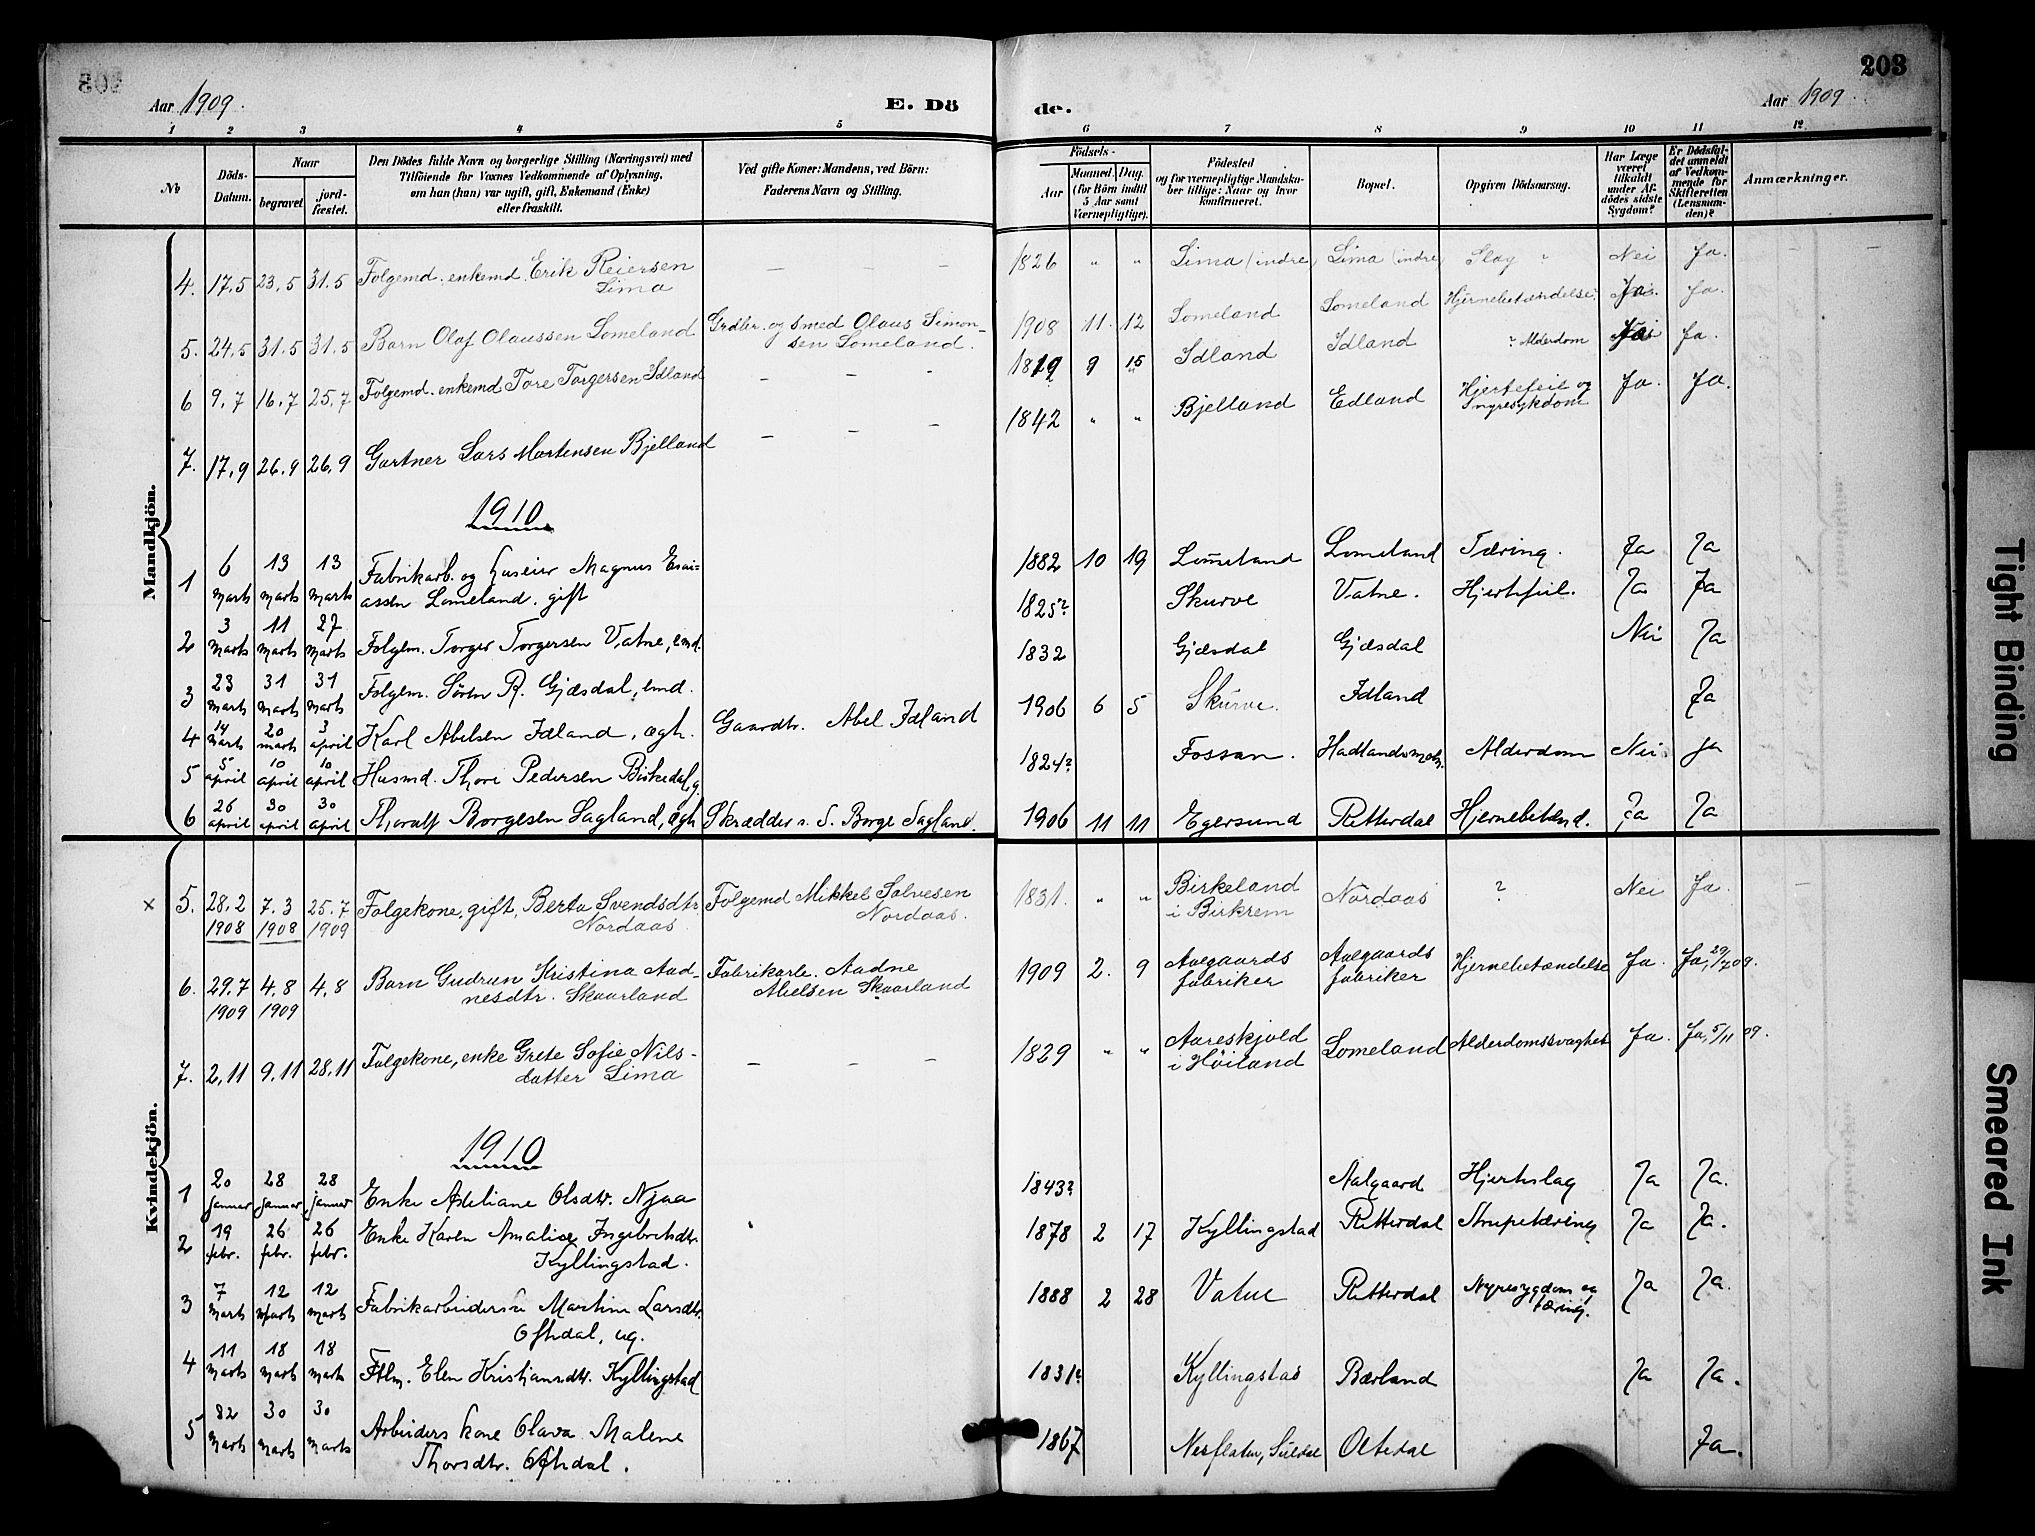 203
Aar 1909.
E. Dö
de.
Aar 1909.
1 2 3 3 4 5 6 7 8 9 10 11 12
No
Döds-
Datum.
Naar
begravet
jord-
fæstet.
Den Dödes fulde Navn og borgerlige Stilling (Næringsvei) med
Tilföiende for Voxnes Vedkommende af Oplysning,
om han (hun) var ugift, gift, Enkemand (Enke)
eller fraskilt.
Ved gifte Koner: Mandens, ved Börn:
Faderens Navn og Stilling.
Födsels-
Aar
Maaned. Dag.
(for Börn indtil
5 Aar samt
Værnepligtige).
Födested
og for værnepligtige Mandska-
ber tillige: Naar og hvor
konfirmeret.
Bopæl.
Opgiven Dödsaarsag.
Har Læge
været
tilkaldt
under Af-
dödes sidste
Sygdom?
Er Dödsfal-
det anmeldt
af Vedkom-
mende for
Skifteretten
(Lensman-
den)?
Anmærkninger.
Mandkjön.
4. 17.5 23.5 31.5 Folgemd. enkemd. Erik Reiersen
Lima
— — — 1826 " " Lima (indre) Lima (indre) Slag ? Nei Ja.
5. 24.5 31.5 31.5 Barn Olaf Olaussen Lomeland
Grdbr. og smed Olaus Simon-
sen Lomeland.
1908 11. 12 Lomeland Lomeland Hjernebetændelse. Ja. Ja.
6 9.7 16.7 25.7 Folgemd. enkemd Tore Torgersen Idland
— — - 1819 9 15 Idland Idland ? Alderdom Ja.
7. 17.9 26.9 26.9 Gartner Lars Mortensen Bjelland
— — — 1842 " " Bjelland Edland Hjertefeil og
nyresykdom Ja. Ja.
1910
1 6 marts 13 marts 13 marts Fabrikarb. og huseier Magnus Esai=
assen Lomeland. gift
1882 10 19 Lomeland Lomeland Tæring. Ja Ja
2 3 marts 11 marts 27 marts Folgem. Torger Torgersen Vatne, emd.
1825? Skurve Vatne. Hjertefeil. Ja Ja
3 23 marts 31 marts 31 marts Folgem. Sören R. Gjæsdal, emd.
1832 Gjæsdal Gjæsdal Nei Ja
4 14 marts 20 marts 3 april Karl Abelsen Idland, ægh. Gaardbr. Abel Idland
1906 6 5 Skurve. Idland Ja
5 5 april 10 april 10 april Husmd. Thore Pedersen Birkedal, g.
1824? Fossan. Alderdom Nei Ja
6 26 april 30 april 30 april Thoralf Borgesen Sagland, ægh Skrædder s. S. Borge Sagland.
1906 11 11 Egersund Retterdal Hjernebetænd. Ja Ja
Kvindekjön.
x 5. 28.2 1908 7.3 1908 25.7 1909 Folgekone, gift, Berta Svendsdtr.
Nordaas.
Folgemd Mikkel Salvesen
Nordaas.
1831. " " Birkeland
i Birkrem
Nordaas ? Nei Ja. —
6. 29.7 1909 4.8 1909 4.8 Barn Gudrun Kristina Aad-
nesdtr. Skaarland
Fabrikarb. Aadne
Nielsen Skaarland
1909 2. 9 Aalgaards
fabriker
Aalgaards
fabriker
Hjernebetændelse Ja. Ja, 29/7 09.
7. 2.11 9.11 28.11 Folgekone, enke Grete Sofie Nils-
datter Lima
— — — 1829 " " Aareskjold
i Höiland
Lomeland Alderdomssvaghet Ja. Ja, 5/11 09.
1910
1 20 januar 28 januar 28 januar Enke Adeliane Olsdtr. Njaa
1843? Aalgaard Hjerteslag Ja Ja.
2 19 febr. 26 febr. 26 febr. Enke Karen Amalie Ingebretsdtr.
Kyllingstad.
1878 2 17 Kyllingstad Retterdal Strupetæring Ja Ja.
3 7 marts 12 marts 12 marts Fabrikarbeiderske Martine Larsdtr.
Oftedal, ug.
1888 2 28 Vatne Retterdal Nyresygdom og
tæring. Ja Ja.
4 11 marts 18 marts 18 marts Ftlm. Elen Kristiansdtr. Kyllingstad
1831? Kyllingstad Bærland Ja Ja.
5 22 marts 30 marts 30 marts Arbeiders kone Olava Malene
Thorsdtr. Oftedal.
1867 Nesflaten, Suldal Oltedal Ja.
Tight Binding
Smeared Ink